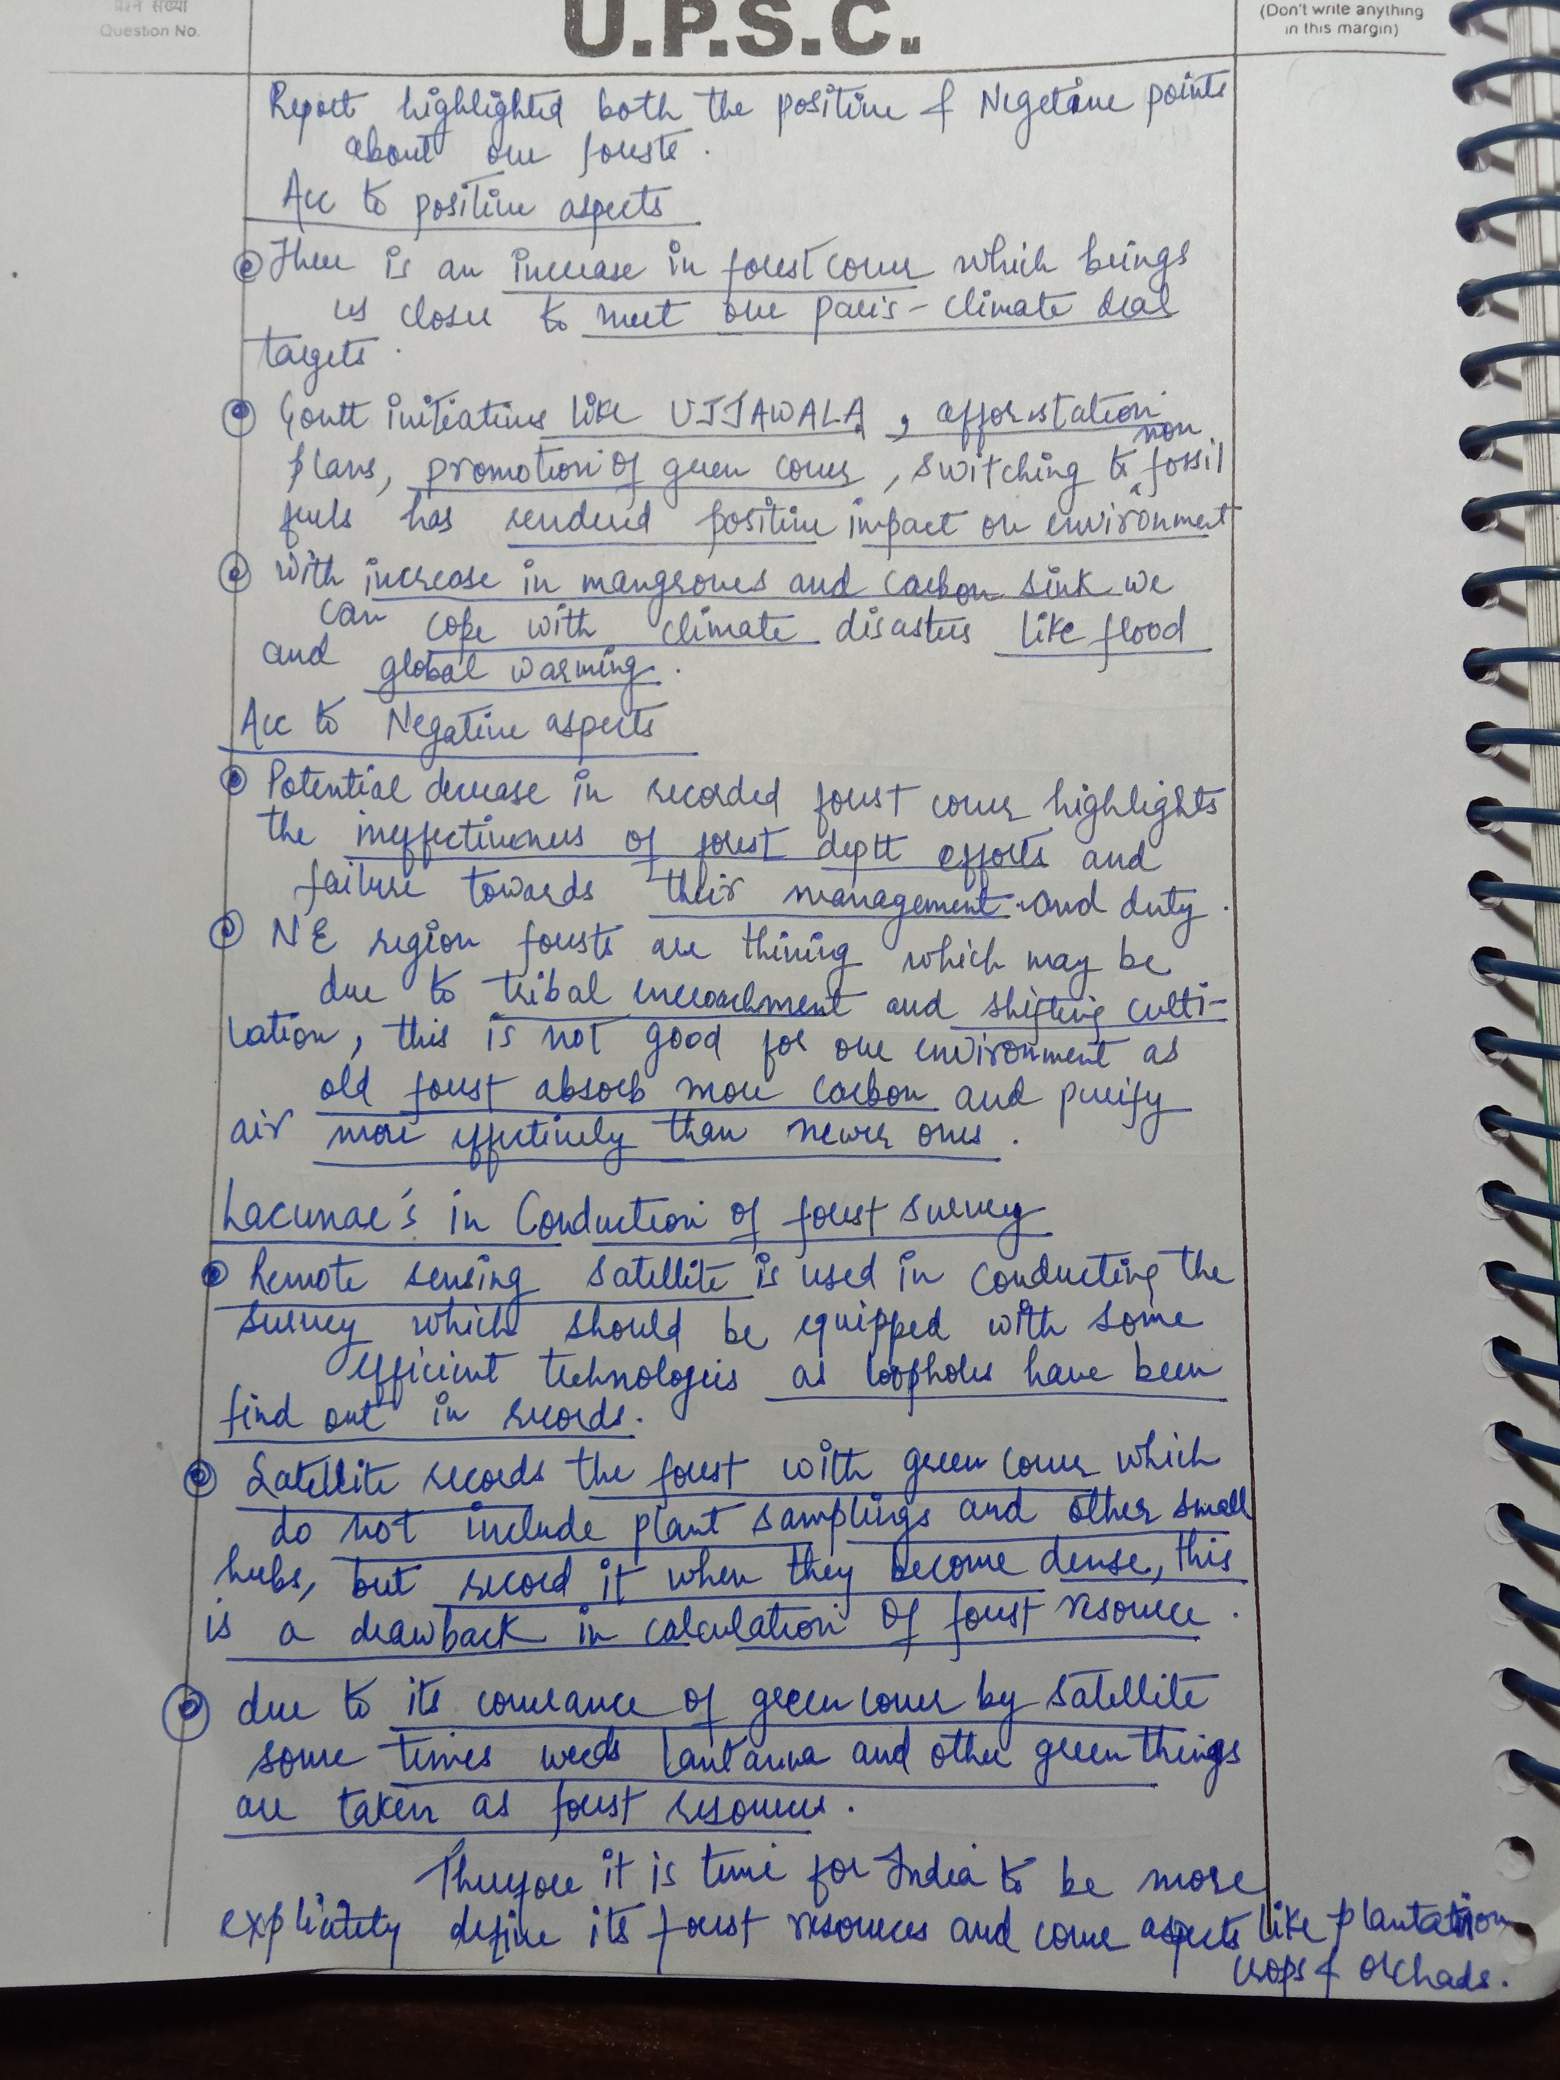 प्रश्न संख्या
Question No.
U.P.S.C.
(Don't write anything
in this margin)
Report highlighted both the positive & Negetive points
about our forests.
Acc to positive aspects
There is an increase in forest cover which brings
us closer to meet our paris-climate deal
targets.
Govtt initiatives like UJJAWALA, afforestation
non
plans, promotion of green cover, switching to ^ fossil
fuels has rendered positive impact on environment
with increase in mangroves and carbon sink we
can cope with climate disasters like flood
and global warming.
Acc to Negative aspects
Potential decrease in recorded forest cover highlights
the ineffectiveness of forest deptt efforts and
failure towards their management and duty.
NE region forests are thining which may be
due to tribal encroachment and shifting culti-
vation, this is not good for our environment as
old forest absorb more carbon and purify
air more effectively than newer ones.
Lacunae's in Conduction of forest survey
Remote sensing satellite is used in conducting the
survey which should be equipped with some
efficient technologies as loopholes have been
find out in records.
Satellite records the forest with green cover which
do not include plant samplings and other small
herbs, but record it when they become dense, this
is a drawback in calculation of forest resource.
due to its coverance of green cover by satellite
some times weeds lantanna and other green things
are taken as forest resources.
Therefore it is time for India to be more
explicitely define its forest resources and cover aspects like plantation
crops & orchads.